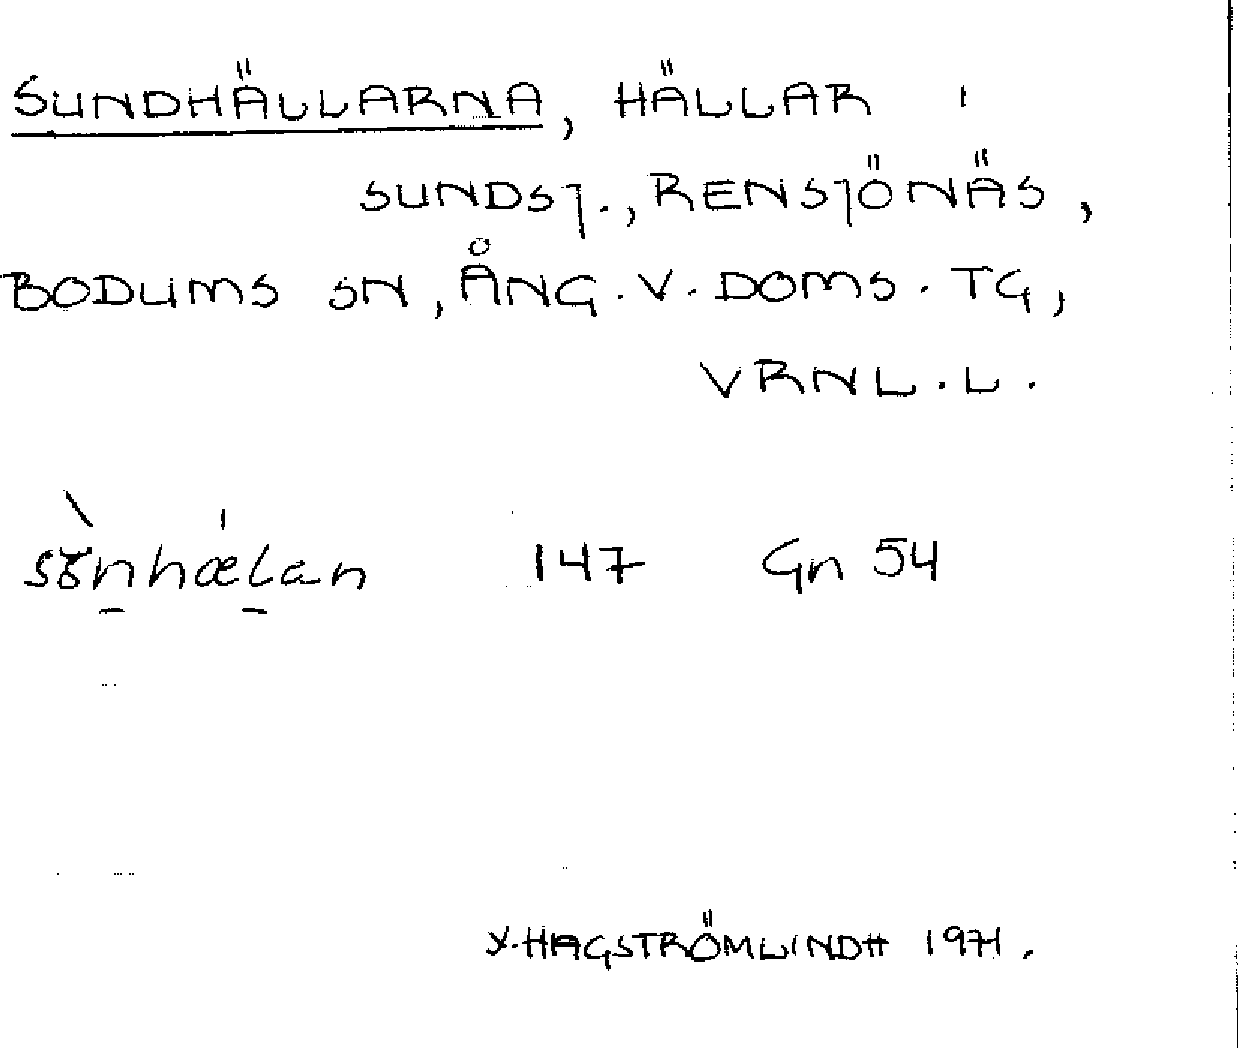 SUNDHÄLLARNA, HÄLLAR I
SUNDSJ., RENSJÖNÄS,
BODUMS SN, ÅNG. V. DOMS. TG,
VRNL. L.
147 Gn 54
Y. HAGSTRÖMLINDH 1971.